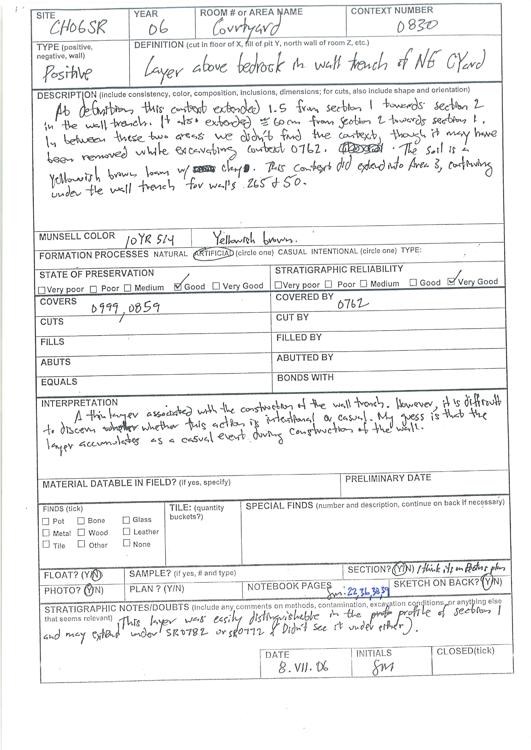 SITE YEAR ROOM # or AREA NAME CONTEXT NUMBER
CH06SR 06 Courtyard 0830
TYPE (positive, negative, wall) DEFINITION (cut in floor of X, fill of pit Y, north wall of room Z, etc.)
Positive Layer above bedrock in wall trench of NE CYard
DESCRIPTION (include consistency, color, composition, inclusions, dimensions; for cuts, also include shape and orientation)
At definition, this context extended 1.5 from section 1 towards section 2
in the wall trench. It also extended ≈ 60cm from section 2 towards section 1.
In between these two areas we didn't find the context, though it may have
been removed while excavating context 0762. The soil is a
Yellowish brown, loam w/ clay. This context did extend into Area 3, continuing
under the wall trench for walls 265 & 50.
MUNSELL COLOR 10 YR 5/4 Yellowish brown.
FORMATION PROCESSES NATURAL ARTIFICIAL (circle one) CASUAL INTENTIONAL (circle one) TYPE:
STATE OF PRESERVATION STRATIGRAPHIC RELIABILITY
Very poor Poor Medium Good Very Good Very poor Poor Medium Good Very Good
COVERS 0999, 0859 COVERED BY 0762
CUTS CUT BY
FILLS FILLED BY
ABUTS ABUTTED BY
EQUALS BONDS WITH
INTERPRETATION
A thin layer associated with the construction of the wall trench. However, it is difficult
to discern whether this action is intentional or casual. My guess is that the
layer accumulates as a casual event during construction of the wall.
MATERIAL DATABLE IN FIELD? (if yes, specify) PRELIMINARY DATE
FINDS (tick) TILE: (quantity buckets?) SPECIAL FINDS (number and description, continue on back if necessary)
Pot Bone Glass
Metal Wood Leather
Tile Other None
FLOAT? (Y/N) SAMPLE? (if yes, # and type) SECTION? (Y/N) I think it's on plan
PHOTO? (Y/N) PLAN? (Y/N) NOTEBOOK PAGES Sm: 22,36,38,39 SKETCH ON BACK? (Y/N)
STRATIGRAPHIC NOTES/DOUBTS (include any comments on methods, contamination, excavation conditions, or anything else
that seems relevant) This layer was easily distinguishable in the profile of section 1
and may extend under SR0782 or SR0772 (Didn't see it under either).
DATE INITIALS CLOSED(tick)
8.VII.06 Sm